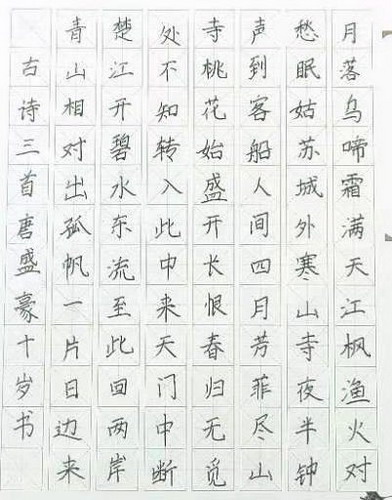 月落乌啼霜满天江枫渔火对
愁眠姑苏城外寒山寺夜半钟
声到客船人间四月芳菲尽山
寺桃花始盛开长恨春归无觅
处不知转入此中来天门中断
楚江开碧水东流至此回两岸
青山相对出孤帆一片日边来
古诗三首唐盛豪十岁书